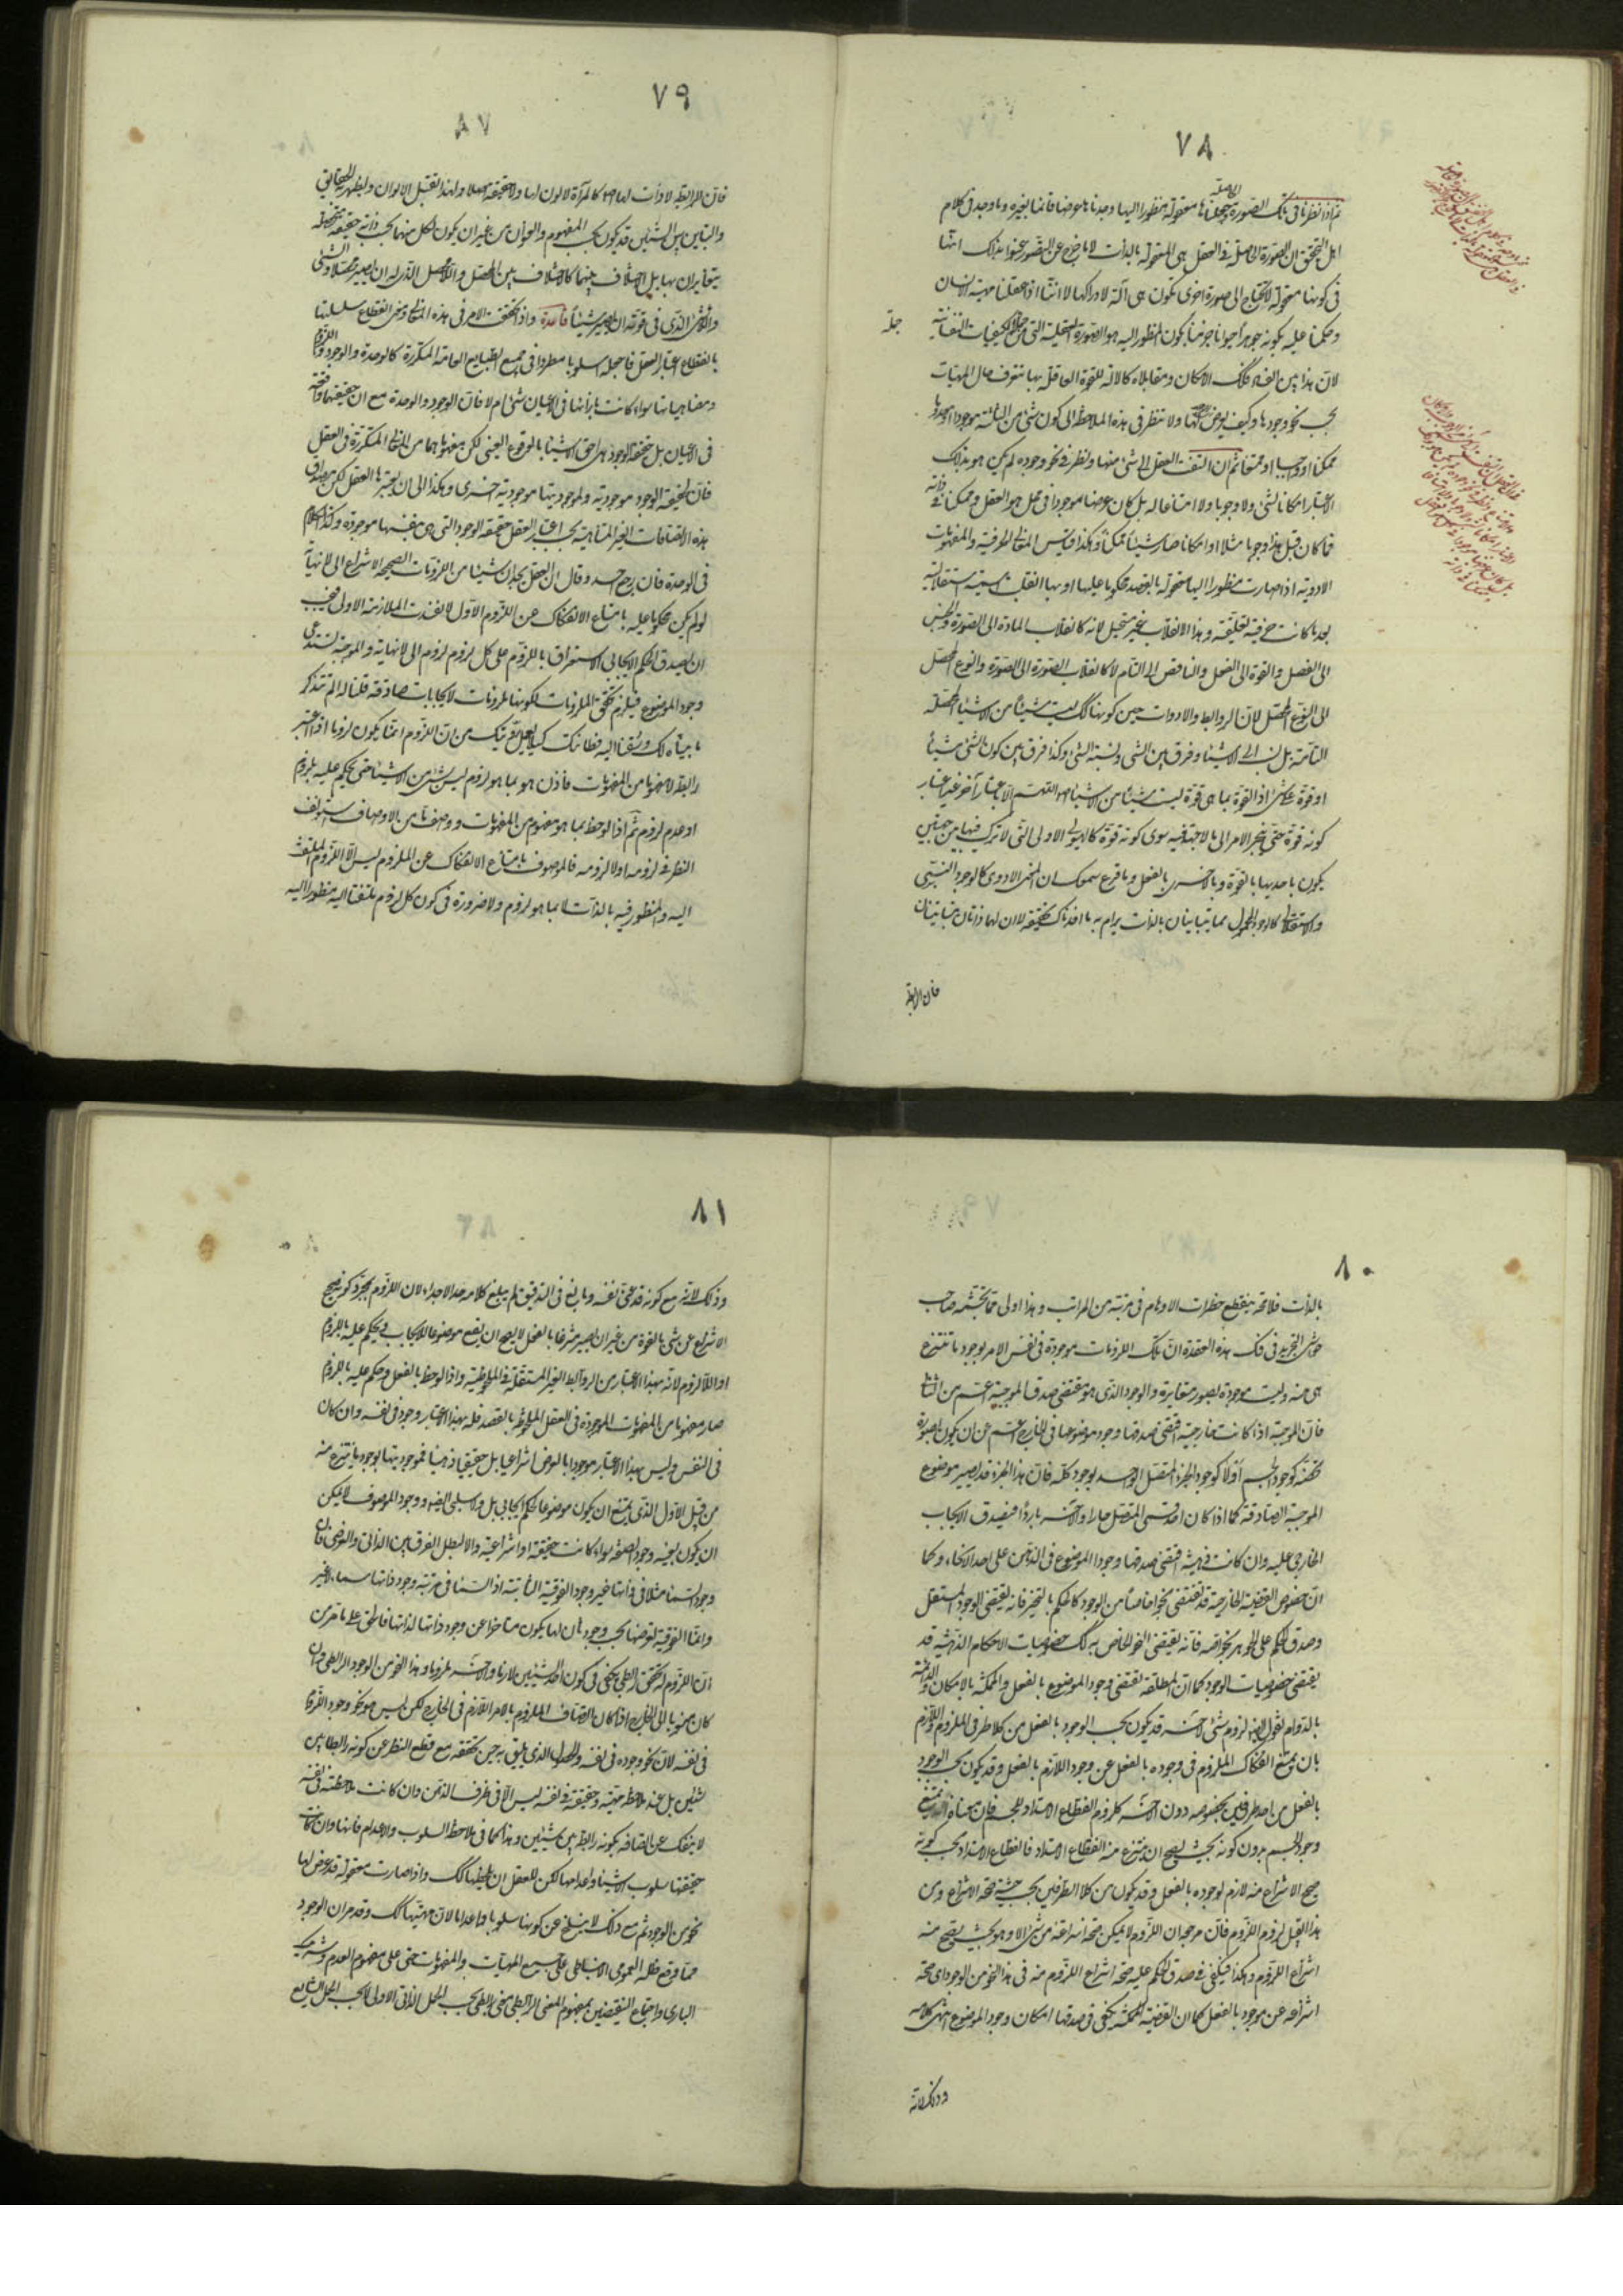 ٧٨
ثم اذا نظرنا فى تلك الصورة الحاصلة وجعلناها معقولة منظورا اليها وجدناها عرضا قائما بغيره وما وجد فى كلام
اهل التحقيق ان الصورة الحاصلة فى العقل هى المعقولة بالذات لا ما خرج عن التصور عنوا بذلك انها
فى كونها معقولة لا تحتاج الى صورة اخرى تكون هى آلة لادراكها لا انا اذا عقلنا مهية الانسان
وحكمنا عليه بكونه جوهرا حيوانا جرميا يكون المنظور اليه هو الصورة العقلية التى من الكيفيات النفسانية
جملة
لان هذا بين الفساد فكذلك الامكان ومقابلاه كالآلة للقوة العاقلة بها تتعرف حال المهيات
بحسب نحو وجودها وكيف يعرض لها ولا تنظر فى هذه الملاحظة الى كون شئ من الثلثة موجودا او معدوما
ممكنا او واجبا او ممتنعا ثم ان التفت العقل الى شئ منها ونظر فى نحو وجوده لم يكن هو بذلك
الاعتبار امكانا لشئ ولا وجوبا ولا امتناعا له بل كان عرضا موجودا فى محل هو العقل وممكنا فى ذاته
فما كان قبل هذا وجوبا مثلا او امكانا صار شيئا ممكنا وهكذا قياس المعانى الحرفية والمفهومات
الادوية اذا صارت منظورا اليها معقولة بالقصد محكوما عليها او بها انقلبت اسمية استقلالية
بعد ما كانت حرفية تعلقية وهذا الانقلاب غير مستحيل لانه كانقلاب المادة الى الصورة والجنس
الى الفصل والقوة الى الفعل والناقص الى التام لا كانقلاب الصورة الى الصورة والنوع المحصل
الى النوع المحصل لان الروابط والادوات حين كونها كذلك ليست شيئا من الاشياء المحصلة
التامة بل نسب الى الاشياء وفرق بين الشئ ونسبة الشئ وكذا فرق بين كون الشئ شيئا
او قوة على شئ اذ القوة بما هى قوة ليست شيئا من الاشياء اللهم الا باعتبار آخر غير اعتبار
كونه قوة حتى ينجر الامر الى ما لا جهة فيه سوى كونه قوة كالهيولى الاولى التى لا تركب فيها من جهتين
يكون باحديهما بالقوة وبالاخرى بالفعل وما قرع سمعك ان المعنى الادوى كالوجود النسبى
والاستقلالى كالوجود المحمول مما يتباينان بالذات يرام به ما افدناك تحقيقه لا ان لهما ذاتان متباينتان
فان الرابطة
٧٩
فان الرابطة لا ذات لها اصلا كالمرآة لا لون لها ولا حقيقة اصلا ولهذا تقبل الالوان وتظهر الحقايق
والتباين بين الشيئين قد يكون بحسب المفهوم والعنوان من غير ان يكون لكل منهما بحسب ذاته حقيقة محصلة
يتغايران بها بل اختلاف بينهما كالاختلاف بين المحصل واللامحصل الذى له ان يصير محصلا والشئ
واللاشئ الذى فى قوته ان يصير شيئا قاعدة واذا تحققت الامر فى هذه المعانى ومن انقطاع سلسلتها
بانقطاع اعتبار العقل فاجعله اسلوبا مطردا فى جميع الطبايع العامة المتكررة كالوحدة والوجود واللزوم
ومضاهياتها سواء كانت بازائها فى الاعيان شئ ام لا فان الوجود والوحدة مع ان حقيقتهما واقعة
فى الاعيان بل حقيقة الوجود هى احق الاشياء بالوقوع العينى لكن مفهوماهما من المعانى المتكررة فى العقل
فان لحقيقة الوجود موجودية ولموجوديتها موجودية اخرى وهكذا الى ان يعتبرها العقل لكن مصداق
هذه الاتصافات الغير المتناهية بحسب اعتبار العقل حقيقة الوجود التى هى بنفسها موجودة وكذا الكلام
فى الوحدة فان رجع احد وقال ان العقل يجد ان شيئا من اللزومات الصحيحة الانتزاع الى لا نهاية
لو لم يكن محكوما عليه بامتناع الانفكاك عن اللزوم الاول لانفسدت الملازمة الاولى فيجب
ان يصدق الحكم الايجابى الاستغراقى باللزوم على كل لزوم لزوم الى لا نهاية والموجبة تستدعى
وجود الموضوع فيلزم تحقق الملزومات لكونها ملزومات لايجابات صادقة قلنا له الم تتذكر
ما بيناه لك وسقنا اليه فطانتك كيلا يعل تعريفك من ان اللزوم انما يكون لزوما اذا اعتبر
رابطة لا مفهوما من المفهومات فاذن هو بما هو لزوم ليس شئ من الاشياء حتى يحكم عليه بلزوم
او عدم لزوم ثم اذا لوحظ بما هو مفهوم من المفهومات ووصف ما من الاوصاف استونف
النظر فى لزومه او لا لزومه فالموصوف بامتناع الانفكاك عن الملزوم ليس الا اللزوم الملتفت
اليه والمنظور فيه بالذات لا بما هو لزوم ولا ضرورة فى كون كل لزوم ملتفتا اليه منظورا اليه
٨٠
بالذات فلا محة ينقطع خطرات الاوهام فى مرتبة من المراتب وهذا اولى مما تجشمه صاحب
حواشى التجريد فى فك هذه العقدة ان تلك اللزومات موجودة فى نفس الامر بوجود ما تنتزع
هى منه وليست موجودة بصور متغايرة والوجود الذى هو مقتضى صدق الموجبة اعم من الثانى
فان الموجبة اذا كانت خارجية اقتضى صدقها وجود موضوعها فى الخارج اعم من ان يكون بصورة
تخصه كوجود الجسم او لا كوجود الجزء المتصل الواحد بوجود كله فان هذا الجزء قد يصير موضوع
الموجبة الصادقة كما اذا كان احد قسمى المتصل حارا والآخر باردا فيصدق الايجاب
الخارجى عليه وان كانت ذهنية اقتضى صدقها وجود الموضوع فى الذهن على احد الانحاء وكما
ان خصوص القضية الخارجية قد تقتضى نحوا خاصا من الوجود كالحكم بالتحيز فانه يقتضى الوجود المستقل
وصدق الحكم على الجوهر بخواصه فانه يقتضى النحو الخاص به كذلك خصوصيات الاحكام الذهنية قد
يقتضى خصوصيات الوجود كما ان المطلقة تقتضى وجود الموضوع بالفعل والممكنة بالامكان والدائمة
بالدوام نقول ايضا لزوم شئ لآخر قد يكون بحسب الوجود بالفعل من كلا طرفى الملزوم واللازم
بان يمتنع انفكاك الملزوم فى وجوده بالفعل عن وجود اللازم بالفعل وقد يكون بحسب الوجود
بالفعل من احد طرفين بخصوصه دون الآخر كلزوم انقطاع الامتداد للجسم فان معناه انه يمتنع
وجود الجسم بدون كونه بحيث يصح ان ينتزع منه انقطاع الامتداد فانقطاع الامتداد بحسب كونه
صحيح الانتزاع منه لازم لوجوده بالفعل وقد يكون من كلا الطرفين بحسب حيثية صحة الانتزاع ومن
هذا القبيل لزوم اللزوم فان مرجعه ان اللزوم لا يمكن صحة انتزاعه من شئ الا وهو بحيث يصح منه
انتزاع اللزوم وهكذا فيكفى فى صدق الحكم عليه صحة انتزاع اللزوم منه فى هذا النحو من الوجود اى صحة
انتزاعه عن موجود بالفعل كما ان القضية الممكنة يكفى فى صدقها امكان وجود الموضوع انتهى كلامه
وذلك لانه
٨١
وذلك لانه مع كونه قد عمق نفسه وبالغ فى التدقيق لم يبلغ كلامه حد الاجداء لان اللزوم بمجرد كونه صحيح
الانتزاع عن شئ بالقوة من غير ان يصير منتزعا بالفعل لا يصح ان يقع موضوعا للايجاب فيحكم عليه باللزوم
او اللالزوم لانه بهذا الاعتبار من الروابط الغير المستقلة فى الملحوظية واذا لوحظ بالفعل وحكم عليه باللزوم
صار مفهوما من المفهومات الموجودة فى العقل الملحوظ بالقصد فله بهذا الاعتبار وجود فى نفسه وان كان
فى النفس وليس بهذا الاعتبار موجودا بالعرض انتزاعيا بل حقيقيا ذهنيا فموجوديتها بوجود ما ينتزع منه
من قبيل الاول الذى يمتنع ان يكون موضوعا لحكم ايجابى بل ولا سلبى ايضا ووجود الموصوف لا يمكن
ان يكون بعينه وجود الصفة سواء كانت حقيقية او انتزاعية والا لبطل الفرق بين الذاتى والعرضى فان
وجود السماء مثلا فى ذاتها غير وجود الفوقية الثابتة اذ السماء فى مرتبة وجود ذاتها سماء لا غير
وانما الفوقية تعرضها بحسب وجود ثان لها يكون متاخرا عن وجود ذاتها لذاتها فالحق على ما مر من
ان اللزوم له تحقق رابطى يكفى فى كون احد الشيئين ملازما والآخر ملزوما وهذا النحو من الوجود الرابطى وان
كان منسوبا الى الخارج اذا كان اتصاف الملزوم بالامر اللازم فى الخارج لكن ليس هو نحو وجود اللزوم
فى نفسه لان نحو وجوده فى نفسه والحصول الذى يليق به حين تحققه مع قطع النظر عن كونه رابطا بين
شيئين بل عند ملاحظة مهيته وحقيقته فى نفسه ليس الا فى ظرف الذهن وان كانت ملاحظته فى نفسه
لا ينفك عن اتصافه بكونه رابطة بين شيئين وهذا كما فى ملاحظة السلوب والاعدام فانها وان كانت
حقيقتها سلوب الاشياء واعدامها لكن للعقل ان يلحظها كذلك واذا صارت معقولة قد عرض لها
نحو من الوجود ثم مع ذلك لا ينسلخ عن كونها سلوبا واعداما لان مهيتها كذلك وقد مر ان الوجود
مما وقع ظله العموى الانبساطى على جميع المهيات والمفهومات حتى على مفهوم العدم وشريك
البارى واجتماع النقيضين بمفهوم المعنى الرابطى معنى رابطى بحسب الحمل الذاتى الاولى لا بحسب الحمل الشايع